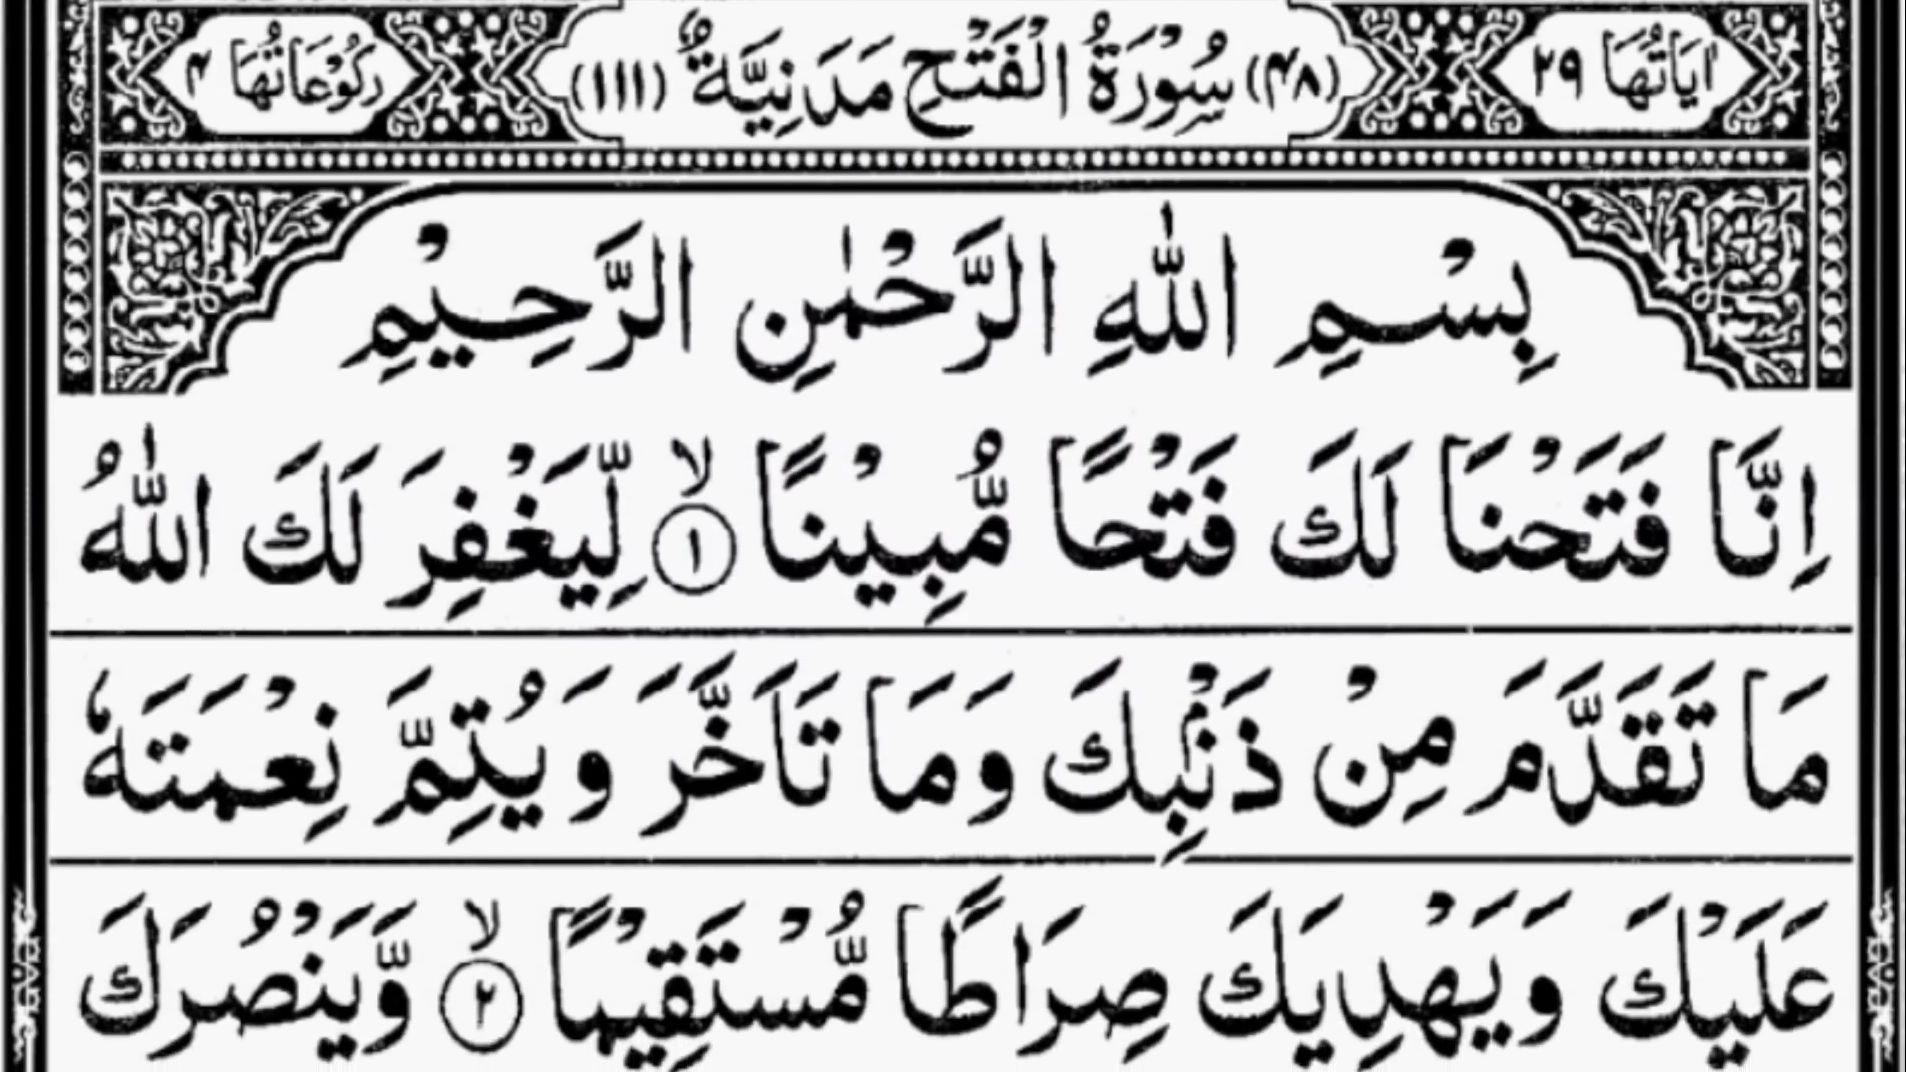 اٰيَاتُهَا ٢٩ (٤٨) سُوْرَةُ الْفَتْحِ مَدَنِيَّةٌ (١١١) رُكُوْعَاتُهَا ٤
بِسْمِ اللّٰهِ الرَّحْمٰنِ الرَّحِيْمِ
اِنَّا فَتَحْنَا لَكَ فَتْحًا مُّبِيْنًا ۙ﴿١﴾ لِّيَغْفِرَ لَكَ اللّٰهُ
مَا تَقَدَّمَ مِنْ ذَنْۢبِكَ وَمَا تَاَخَّرَ وَيُتِمَّ نِعْمَتَهٗ
عَلَيْكَ وَيَهْدِيَكَ صِرَاطًا مُّسْتَقِيْمًا ۙ﴿٢﴾ وَّيَنْصُرَكَ